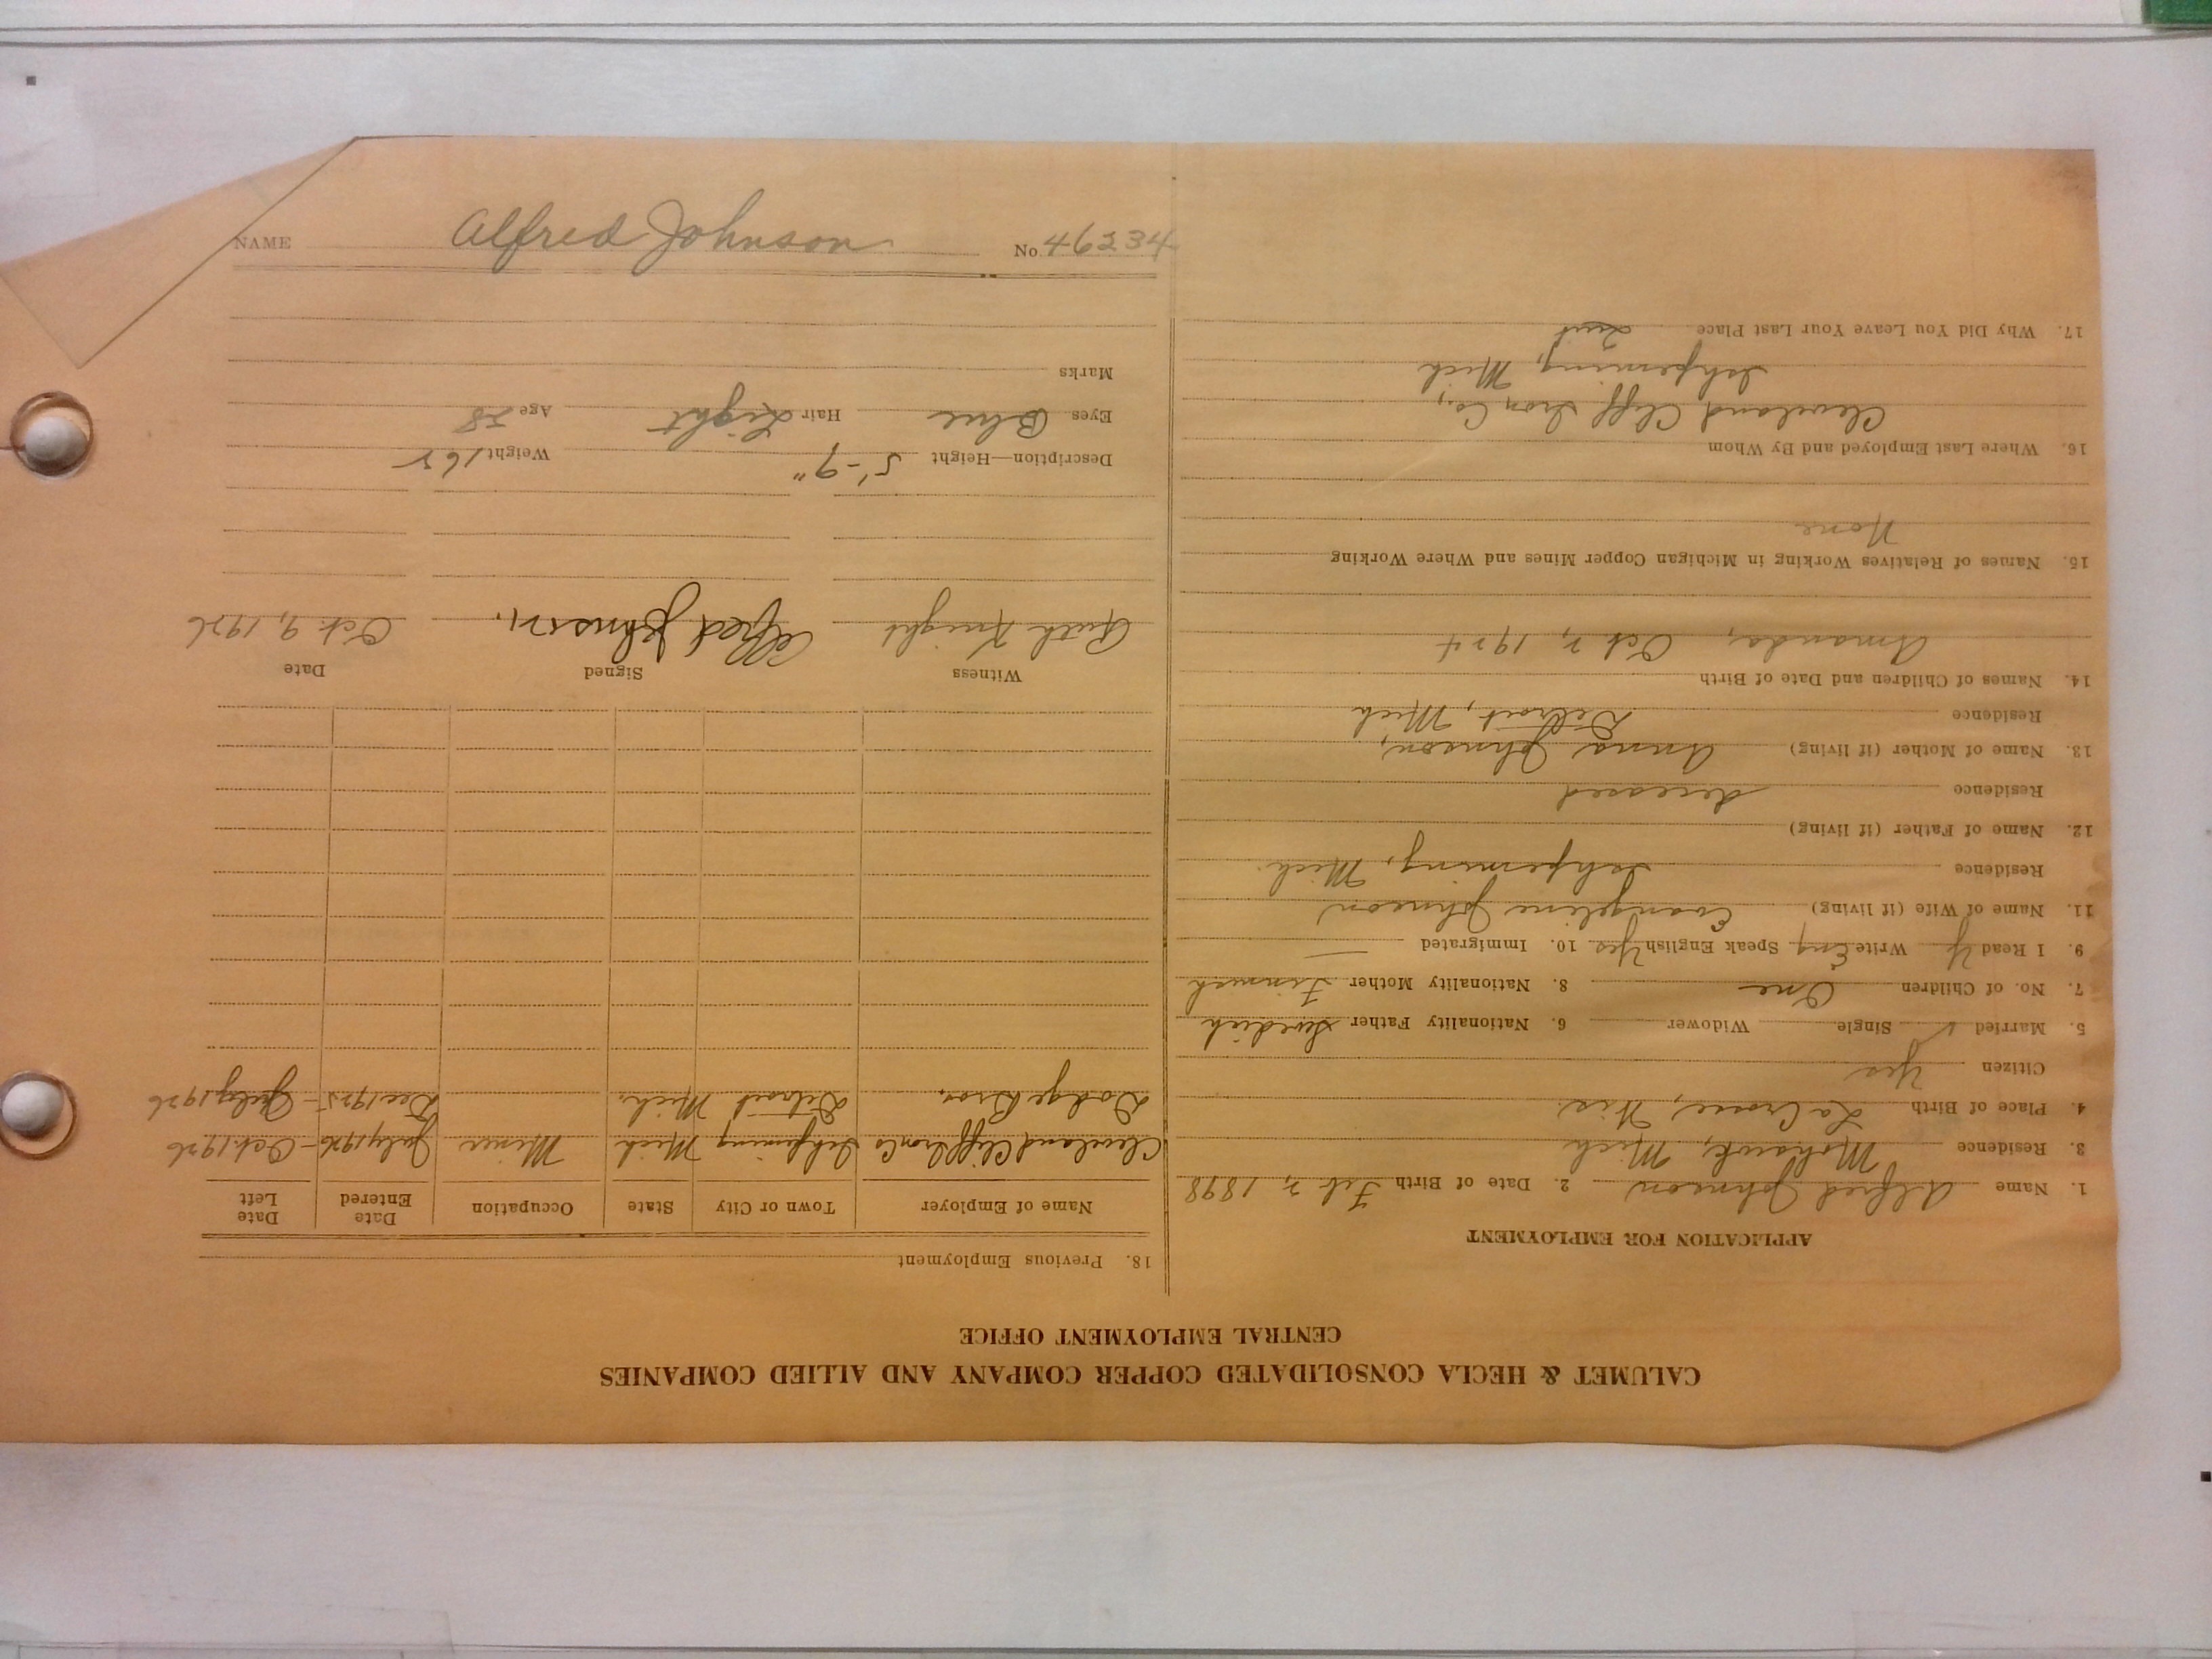 NAME Alfred Johnson No. 46234
CALUMET & HECLA CONSOLIDATED COPPER COMPANY AND ALLIED COMPANIES
CENTRAL EMPLOYMENT OFFICE
APPLICATION FOR EMPLOYMENT
1. Name Alfred Johnson 2. Date of Birth Feb 2, 1898
3. Residence Mohawk, Mich
4. Place of Birth La Crosse, Wis.
Citizen Yes
5. Married ✓ Single Widower 6. Nationality Father Swedish
7. No. of Children One 8. Nationality Mother Finnish
9. I Read Y Write Eng Speak English Yes 10. Immigrated —
11. Name of Wife (if living) Evangeline Johnson
Residence Ishpeming, Mich.
12. Name of Father (if living)
Residence deceased
13. Name of Mother (if living) Anna Johnson,
Residence Detroit, Mich
14. Names of Children and Date of Birth
Amanda, Oct 2, 1924
15. Names of Relatives Working in Michigan Copper Mines and Where Working
None
16. Where Last Employed and By Whom
Cleveland Cliff Iron Co.,
Ishpeming, Mich
17. Why Did You Leave Your Last Place Quit
18. Previous Employment
Name of Employer Town or City State Occupation Date Entered Date Left
Cleveland Cliff Iron Co Ishpeming Mich Miner July 1926 - Oct. 1926
Dodge Bros. Detroit Mich. Dec 1925 - July 1926
Witness Signed Date
Ruth Knight Alfred Johnson. Oct. 9, 1926
Description—Height 5'-9" Weight 165
Eyes Blue Hair Light Age 28
Marks